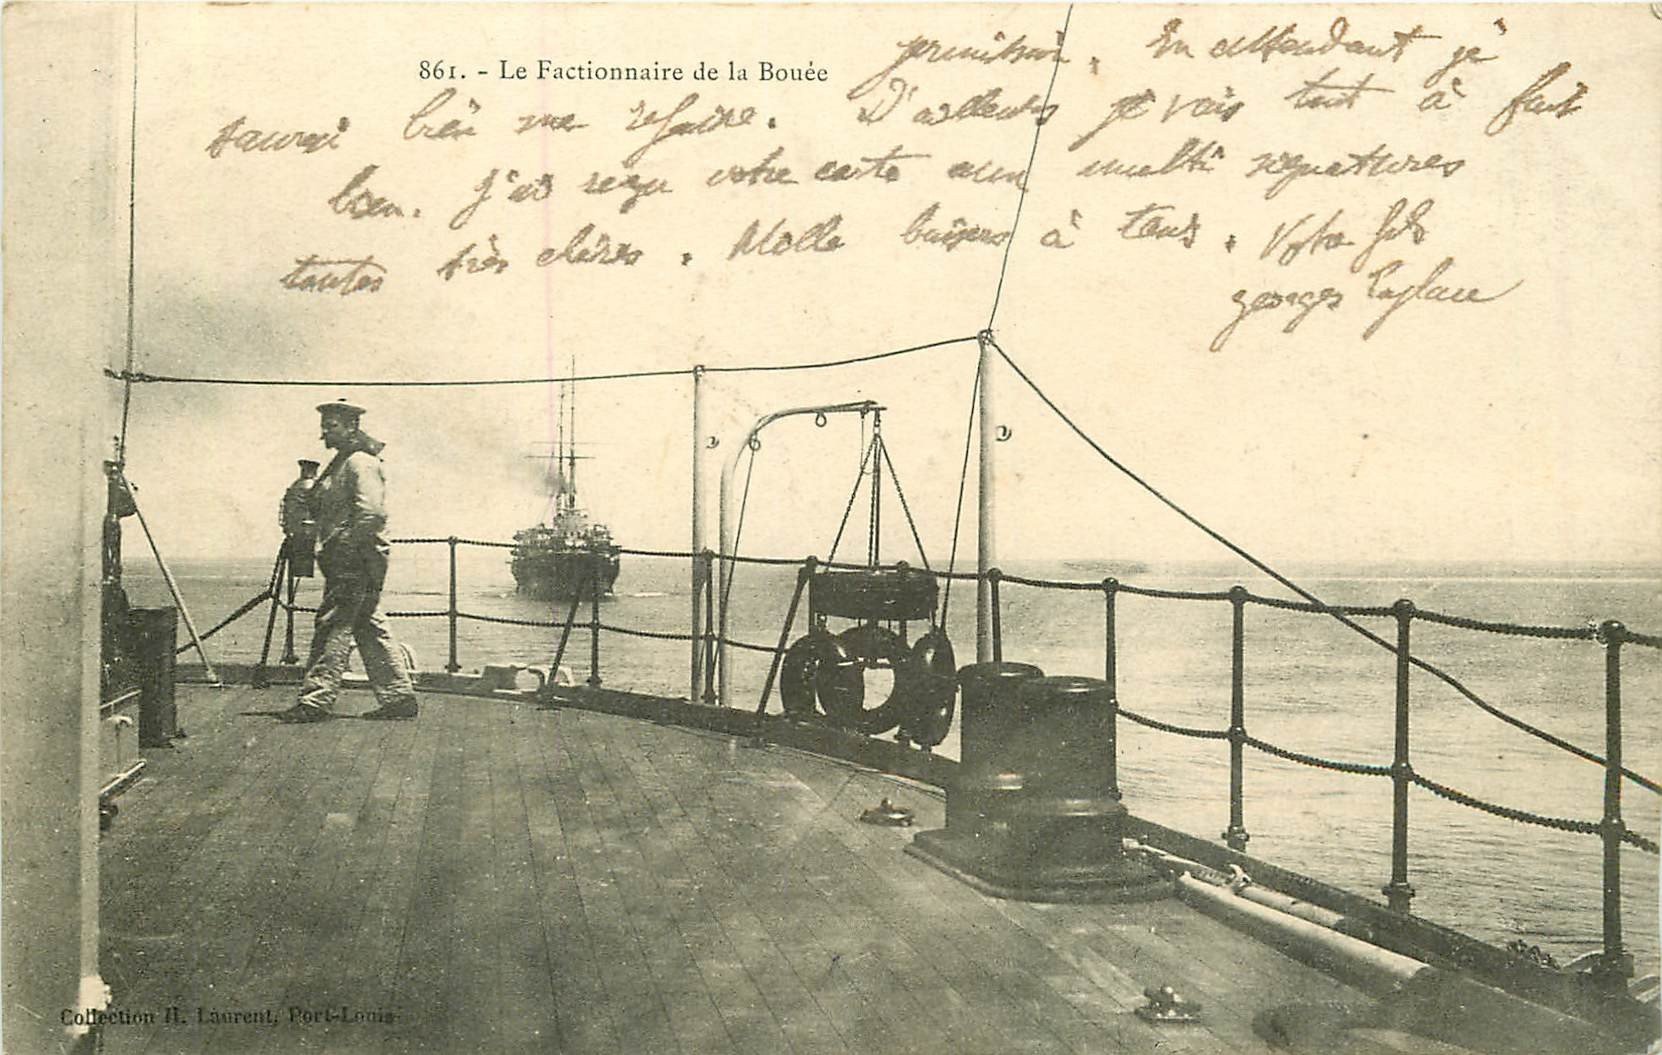 861. - Le Factionnaire de la Bouée
permission. En attendant je
saurai bien me refaire. D'ailleurs je vais tout à fait
bien. J'ai reçu votre carte aux multi signatures
toutes très chères. Mille baisers à tous. Votre fils
georges
Collection H. Laurent, Port-Louis